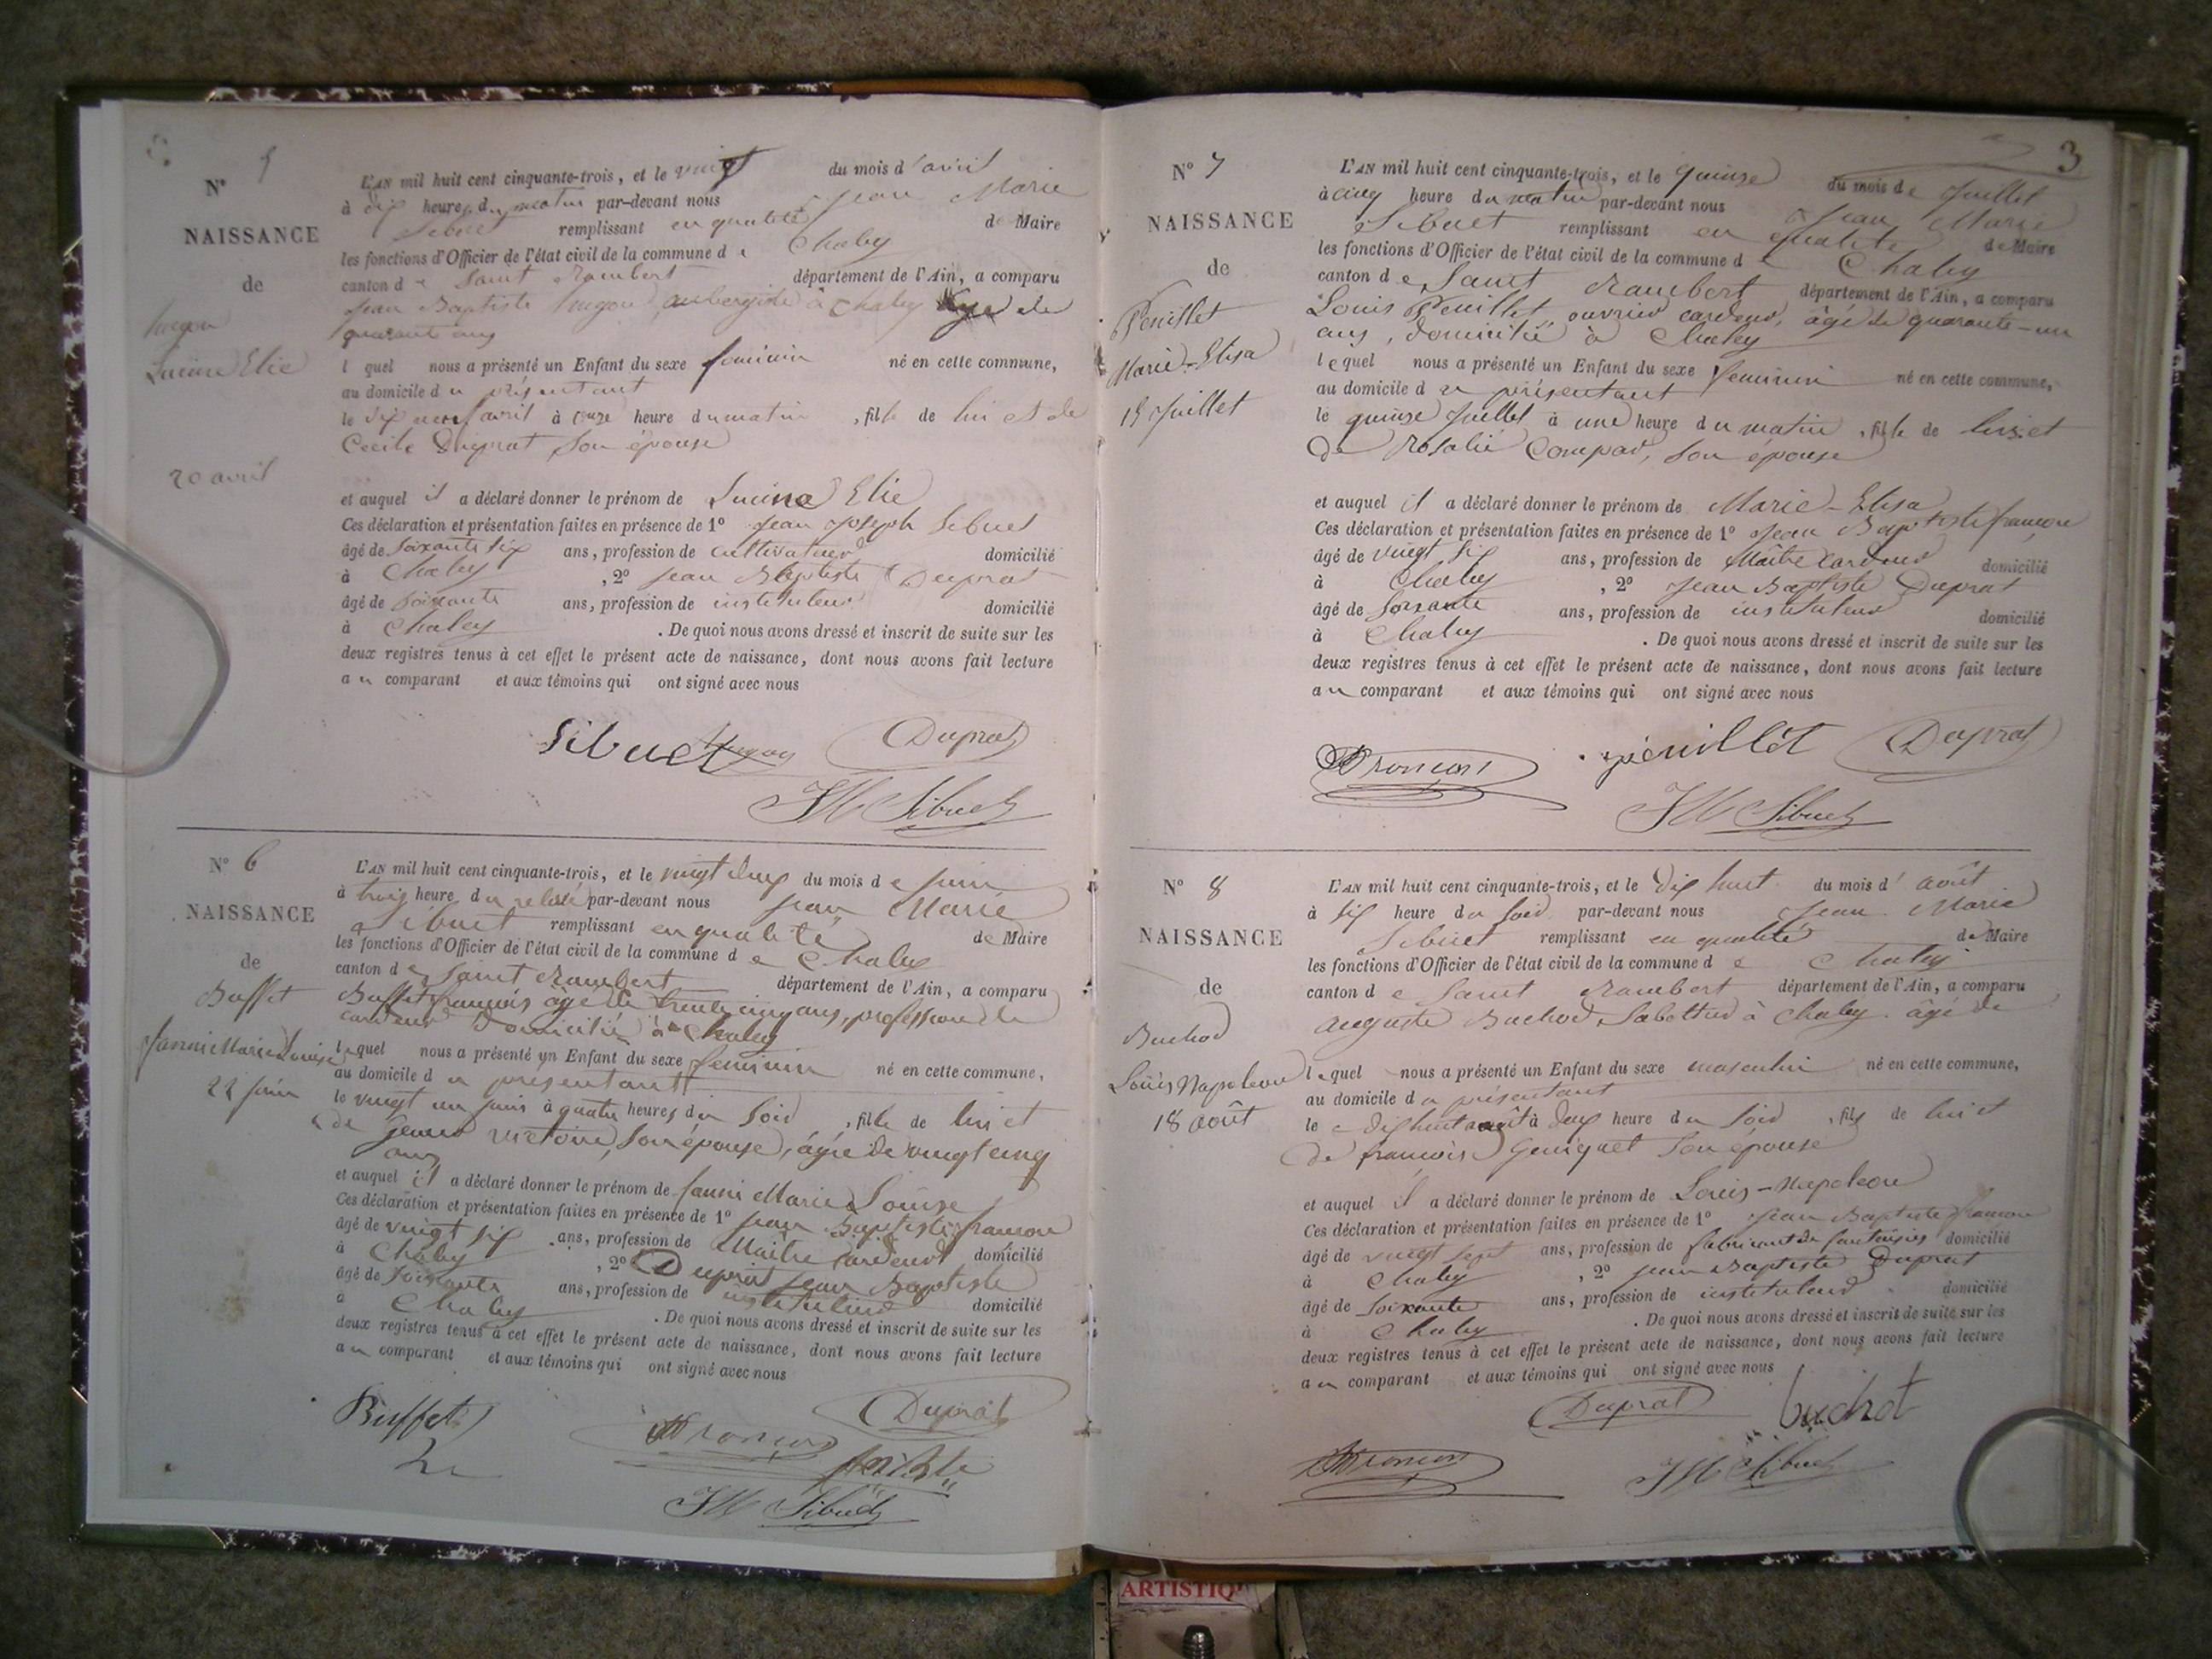 N° 5
NAISSANCE
de
hugon
Lucina Elie
20 avril
L'AN mil huit cent cinquante-trois, et le vingt du mois d'avril
à dix heures du matin par-devant nous Jean Marie
Sibuet remplissant en qualité de Maire
les fonctions d'Officier de l'état civil de la commune de Chaley
canton de Saint Rambert département de l'Ain, a comparu
Jean Baptiste hugon aubergiste à Chaley âgé de
quarante ans
lequel nous a présenté un Enfant du sexe feminin né en cette commune,
au domicile du présentant
le dix neuf avril à onze heure du matin, fille de lui et de
Cecile Duprat, son épouse
et auquel il a déclaré donner le prénom de Lucina Elie
Ces déclaration et présentation faites en présence de 1° Jean Joseph Sibuet
âgé de soixante six ans, profession de cultivateur domicilié
à Chaley, 2° Jean Baptiste Duprat
âgé de soixante ans, profession de instituteur domicilié
à Chaley. De quoi nous avons dressé et inscrit de suite sur les
deux registres tenus à cet effet le présent acte de naissance, dont nous avons fait lecture
au comparant et aux témoins qui ont signé avec nous
Sibuet hugon Duprat
JM Sibuet
N° 6
NAISSANCE
de
Buffet
Fanni Marie Louise
22 Juin
L'AN mil huit cent cinquante-trois, et le vingt deux du mois de Juin
à trois heure du par-devant nous Jean Marie
Sibuet remplissant en qualité de Maire
les fonctions d'Officier de l'état civil de la commune de Chaley
canton de Saint Rambert département de l'Ain, a comparu
Buffet françois âgé de trente cinq ans, profession de
cardeur Domicilié à Chaley
lequel nous a présenté un Enfant du sexe feminin né en cette commune,
au domicile du présentant
le vingt un juin à quatre heures du soir, fille de lui et
de victoire, son épouse, âgée de vingt cinq
ans
et auquel il a déclaré donner le prénom de fanni Marie Louise
Ces déclaration et présentation faites en présence de 1° Jean Baptiste françon
âgé de vingt six ans, profession de Maître Cardeur domicilié
à Chaley, 2° Duprat Jean Baptiste
âgé de Soixante ans, profession de instituteur domicilié
à Chaley. De quoi nous avons dressé et inscrit de suite sur les
deux registres tenus à cet effet le présent acte de naissance, dont nous avons fait lecture
au comparant et aux témoins qui ont signé avec nous
Buffet françon Duprat
JM Sibuet
3
N° 7
NAISSANCE
de
Penillet
Marie-Elisa
15 Juillet
L'AN mil huit cent cinquante-trois, et le quinze du mois de Juillet
à cinq heure du matin par-devant nous Jean Marie
Sibuet remplissant en qualité de Maire
les fonctions d'Officier de l'état civil de la commune de Chaley
canton de Saint Rambert département de l'Ain, a comparu
Louis Penillet ouvrier cardeur, âgé de quarante-un
ans, domicilié à Chaley
lequel nous a présenté un Enfant du sexe feminin né en cette commune,
au domicile du présentant
le quinze Juillet à une heure du matin, fille de lui et
de Rosalie Compad, son épouse
et auquel il a déclaré donner le prénom de Marie-Elisa
Ces déclaration et présentation faites en présence de 1° Jean Baptiste françon
âgé de vingt six ans, profession de Maître Cardeur domicilié
à Chaley, 2° Jean Baptiste Duprat
âgé de Soixante ans, profession de instituteur domicilié
à Chaley. De quoi nous avons dressé et inscrit de suite sur les
deux registres tenus à cet effet le présent acte de naissance, dont nous avons fait lecture
au comparant et aux témoins qui ont signé avec nous
françon penillet Duprat
JM Sibuet
N° 8
NAISSANCE
de
Buchod
Louis Napoleon
18 août
L'AN mil huit cent cinquante-trois, et le dix huit du mois d'août
à six heure du soir par-devant nous Jean Marie
Sibuet remplissant en qualité de Maire
les fonctions d'Officier de l'état civil de la commune de Chaley
canton de Saint Rambert département de l'Ain, a comparu
auguste Buchod, Sabottier à Chaley âgé de
lequel nous a présenté un Enfant du sexe masculin né en cette commune,
au domicile du présentant
le dix huit août à deux heure du soir, fils de lui et
de francoise Geniquet son épouse
et auquel il a déclaré donner le prénom de Louis-Napoleon
Ces déclaration et présentation faites en présence de 1° Jean Baptiste françon
âgé de vingt sept ans, profession de fabricant de fantaisies domicilié
à Chaley, 2° Jean Baptiste Duprat
âgé de soixante ans, profession de instituteur domicilié
à Chaley. De quoi nous avons dressé et inscrit de suite sur les
deux registres tenus à cet effet le présent acte de naissance, dont nous avons fait lecture
au comparant et aux témoins qui ont signé avec nous
Duprat buchot
françon JM Sibuet
ARTISTIQ